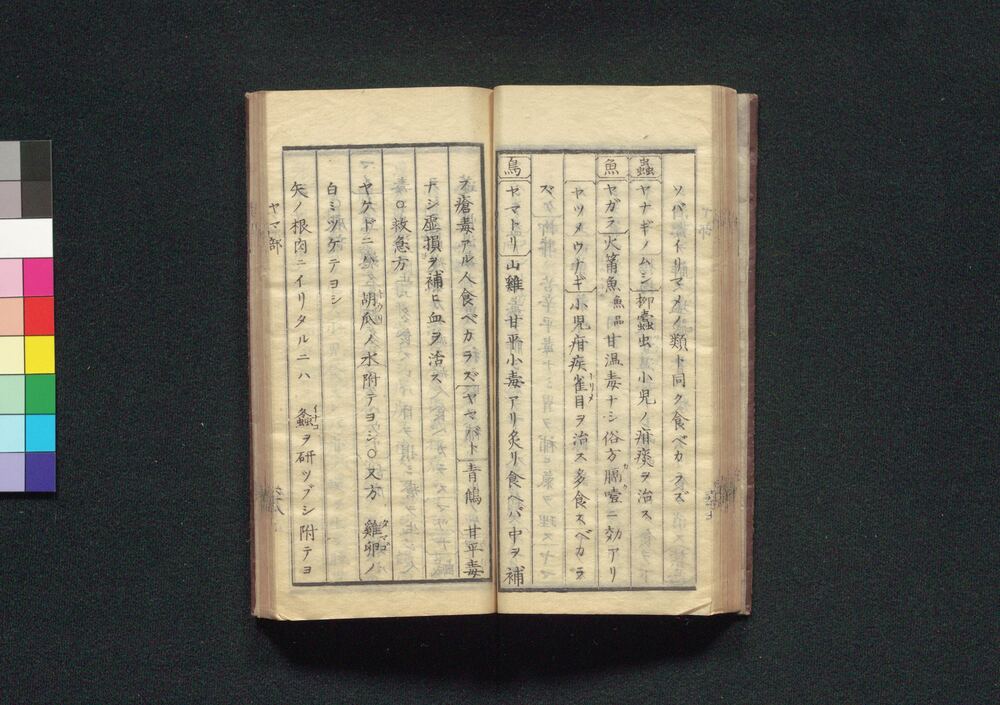 ソバイリマメノ類ト同ク食ベカラズ
蟲 ヤナギノムシ 柳蠧虫小児ノ疳疾ヲ治ス
魚 ヤガラ 火筩魚 魚品 甘温毒ナシ俗方膈噎ニ効アリ
ヤツメウナギ 小児疳疾雀目ヲ治ス多食スベカラ
ズ
鳥 ヤマトリ 山雞甘平小毒アリ炙リ食ヘバ中ヲ補
フ瘡毒アル人食ベカラズ ヤマバト 青鳩 甘平毒
ナシ虚損ヲ補ヒ血ヲ活ス
○救急方
ヤケドニハ胡瓜ノ水附テヨシ○又方 雞卵ノ
白ミツケテヨシ
矢ノ根肉ニイリタルニハ 螽ヲ研ツブシ附テヨ
ヤマ部